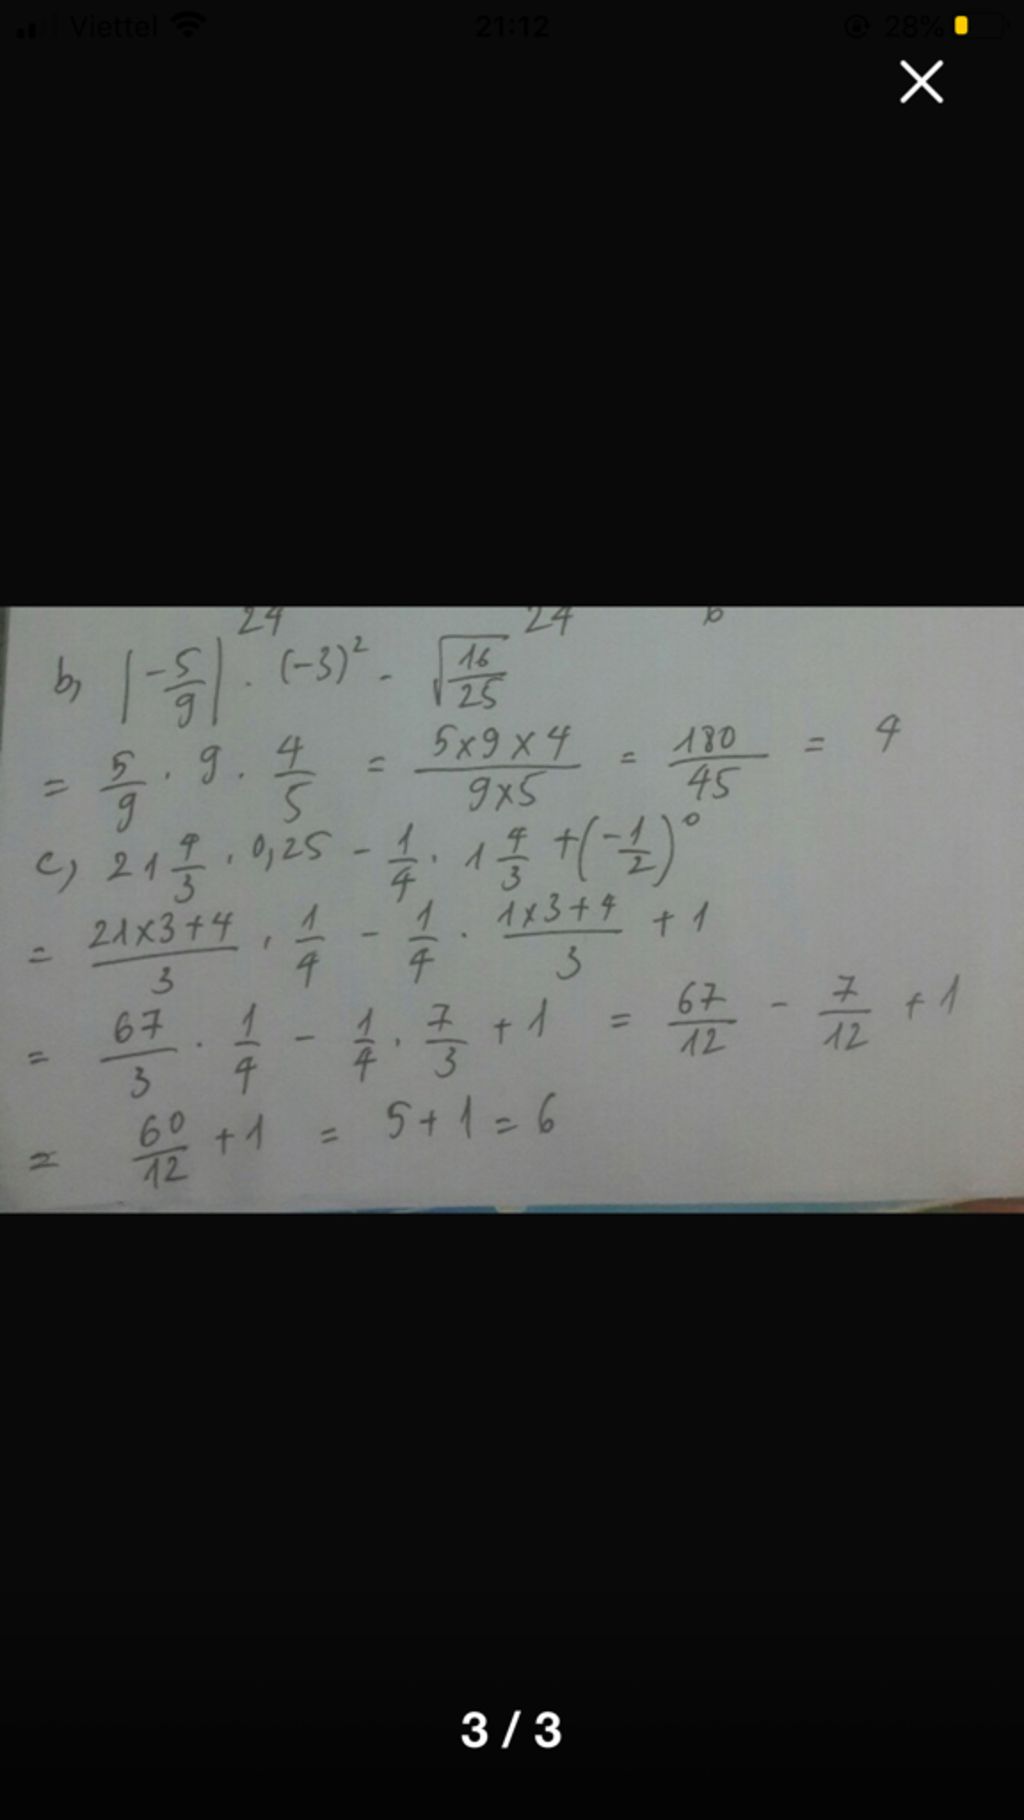 Viettel 21:12 28%
24 24 6
b, |-5/9| . (-3)² . √16/25
= 5/9 . 9 . 4/5 = 5x9x4/9x5 = 180/45 = 4
c, 21 4/3 . 0,25 - 1/4 . 1 4/3 + (-1/2)⁰
= 21x3+4/3 . 1/4 - 1/4 . 1x3+4/3 + 1
= 67/3 . 1/4 - 1/4 . 7/3 + 1 = 67/12 - 7/12 + 1
= 60/12 + 1 = 5 + 1 = 6
3 / 3